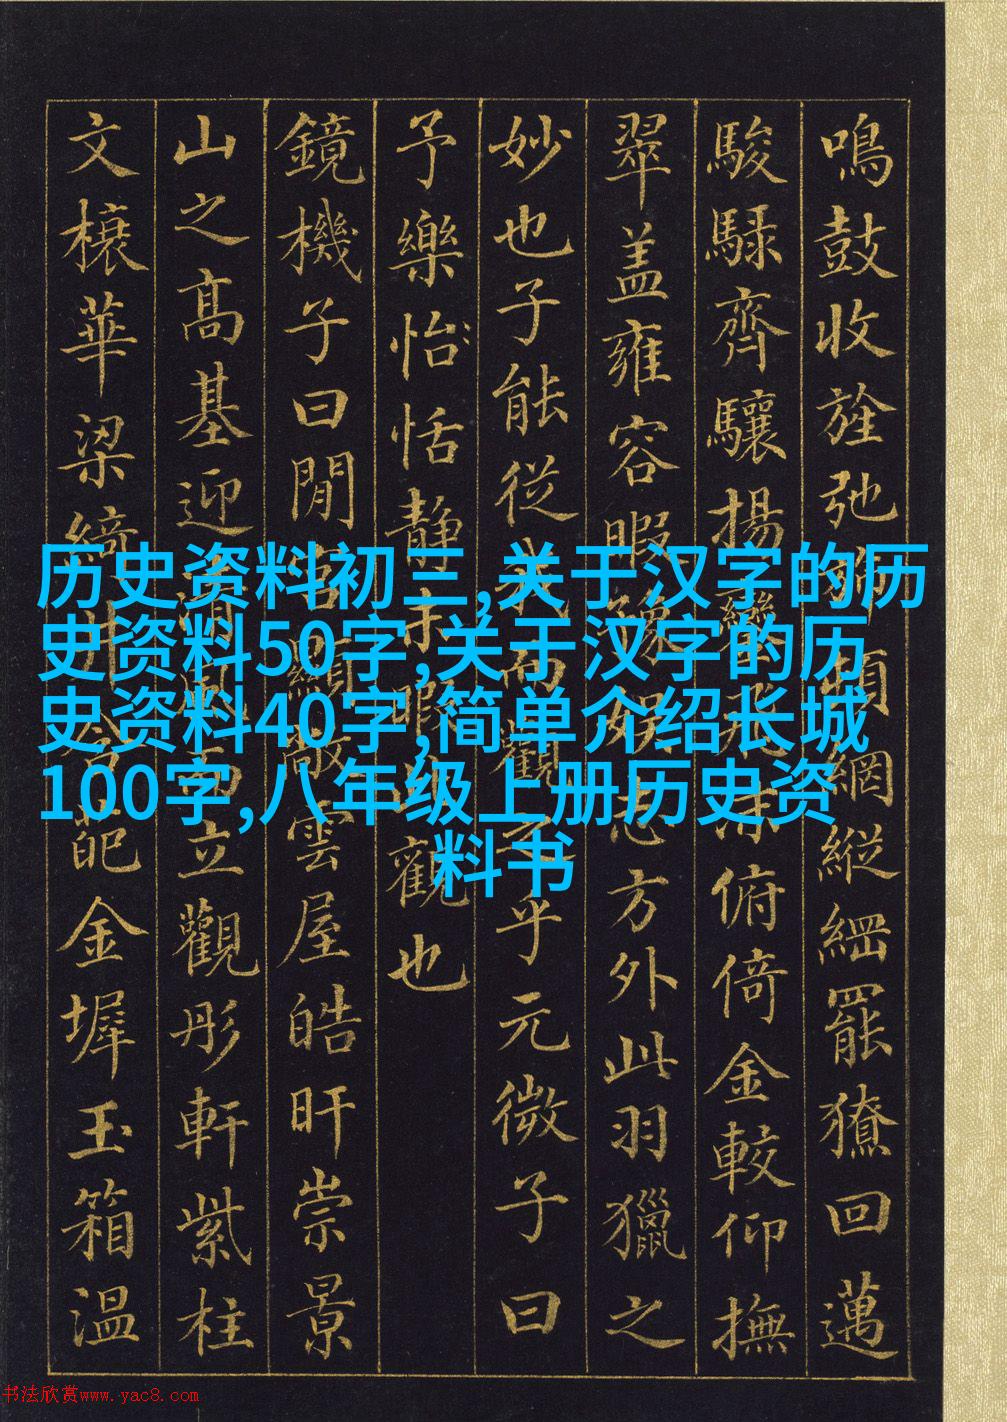 鳴鼓收旌弛斾頓網縱綱罷獠回邁
駿騄齊驤揚鑾飛沫俯倚金較仰撫
翠盖雍容暇豫娛志方外此羽獵之
妙也子能從我而觀之乎元微子曰
予樂怡恬静未暇此觀也
鏡機子曰閒宮顯敞雲屋皓旰崇景
山之高基迎清風而立觀彤軒紫柱
文榱華梁綺井含葩金墀玉箱温
历史资料初三,关于汉字的历
史资料50字,关于汉字的历
史资料40字,简单介绍长城
100字,八年级上册历史资
料书
书法欣赏www.yac8.com